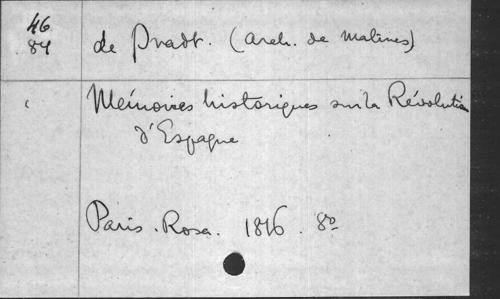 46
84
de Pradt. (Arch. de Malines)
Mémoires historiques sur la Révolution
d'Espagne
Paris. Rosa. 1816. 8º